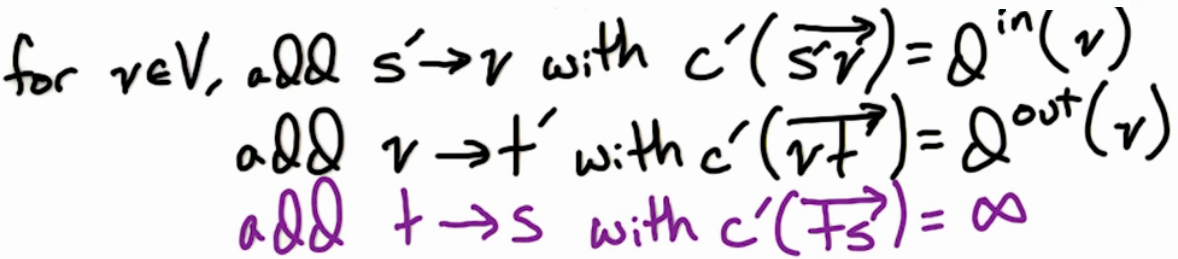 for v∈V, add s′→v with c′(s′v→) = d^in(v)
add v→t′ with c′(vt→) = d^out(v)
add t→s with c′(ts→) = ∞